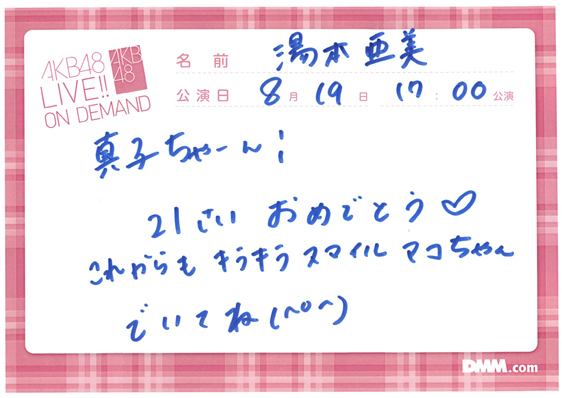 AKB48
LIVE!!
ON DEMAND
AKB
48
名前 湯本亜美
公演日 8月19日 17:00公演
真子ちゃーん!
21さい おめでとう♡
これからも キラキラ スマイル マコちゃん
でいてね(^o^)
DMM.com